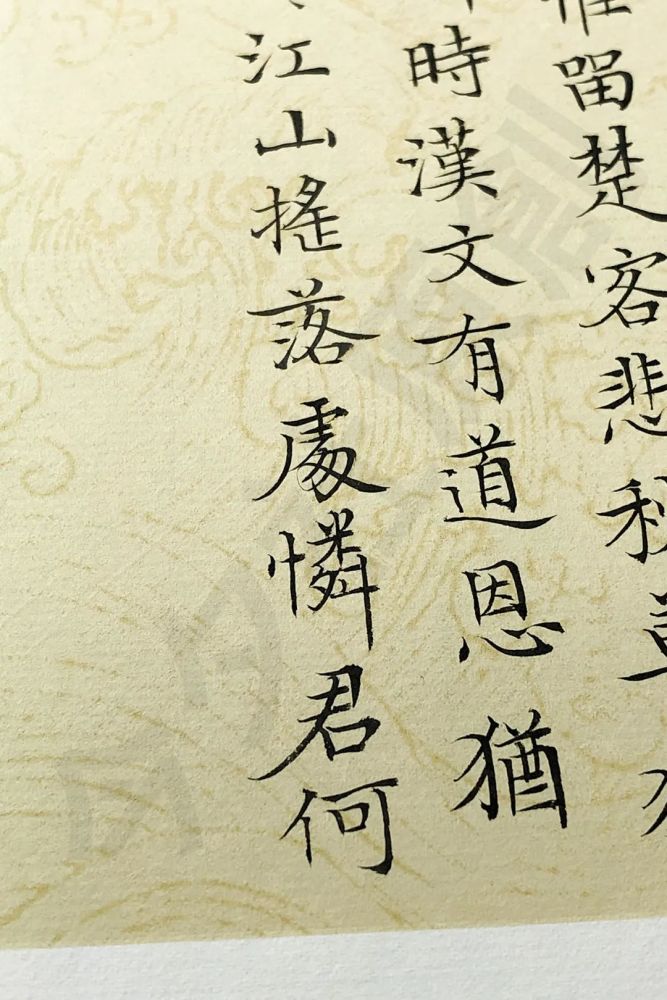 留楚客悲秋
時漢文有道恩猶
江山搖落處憐君何